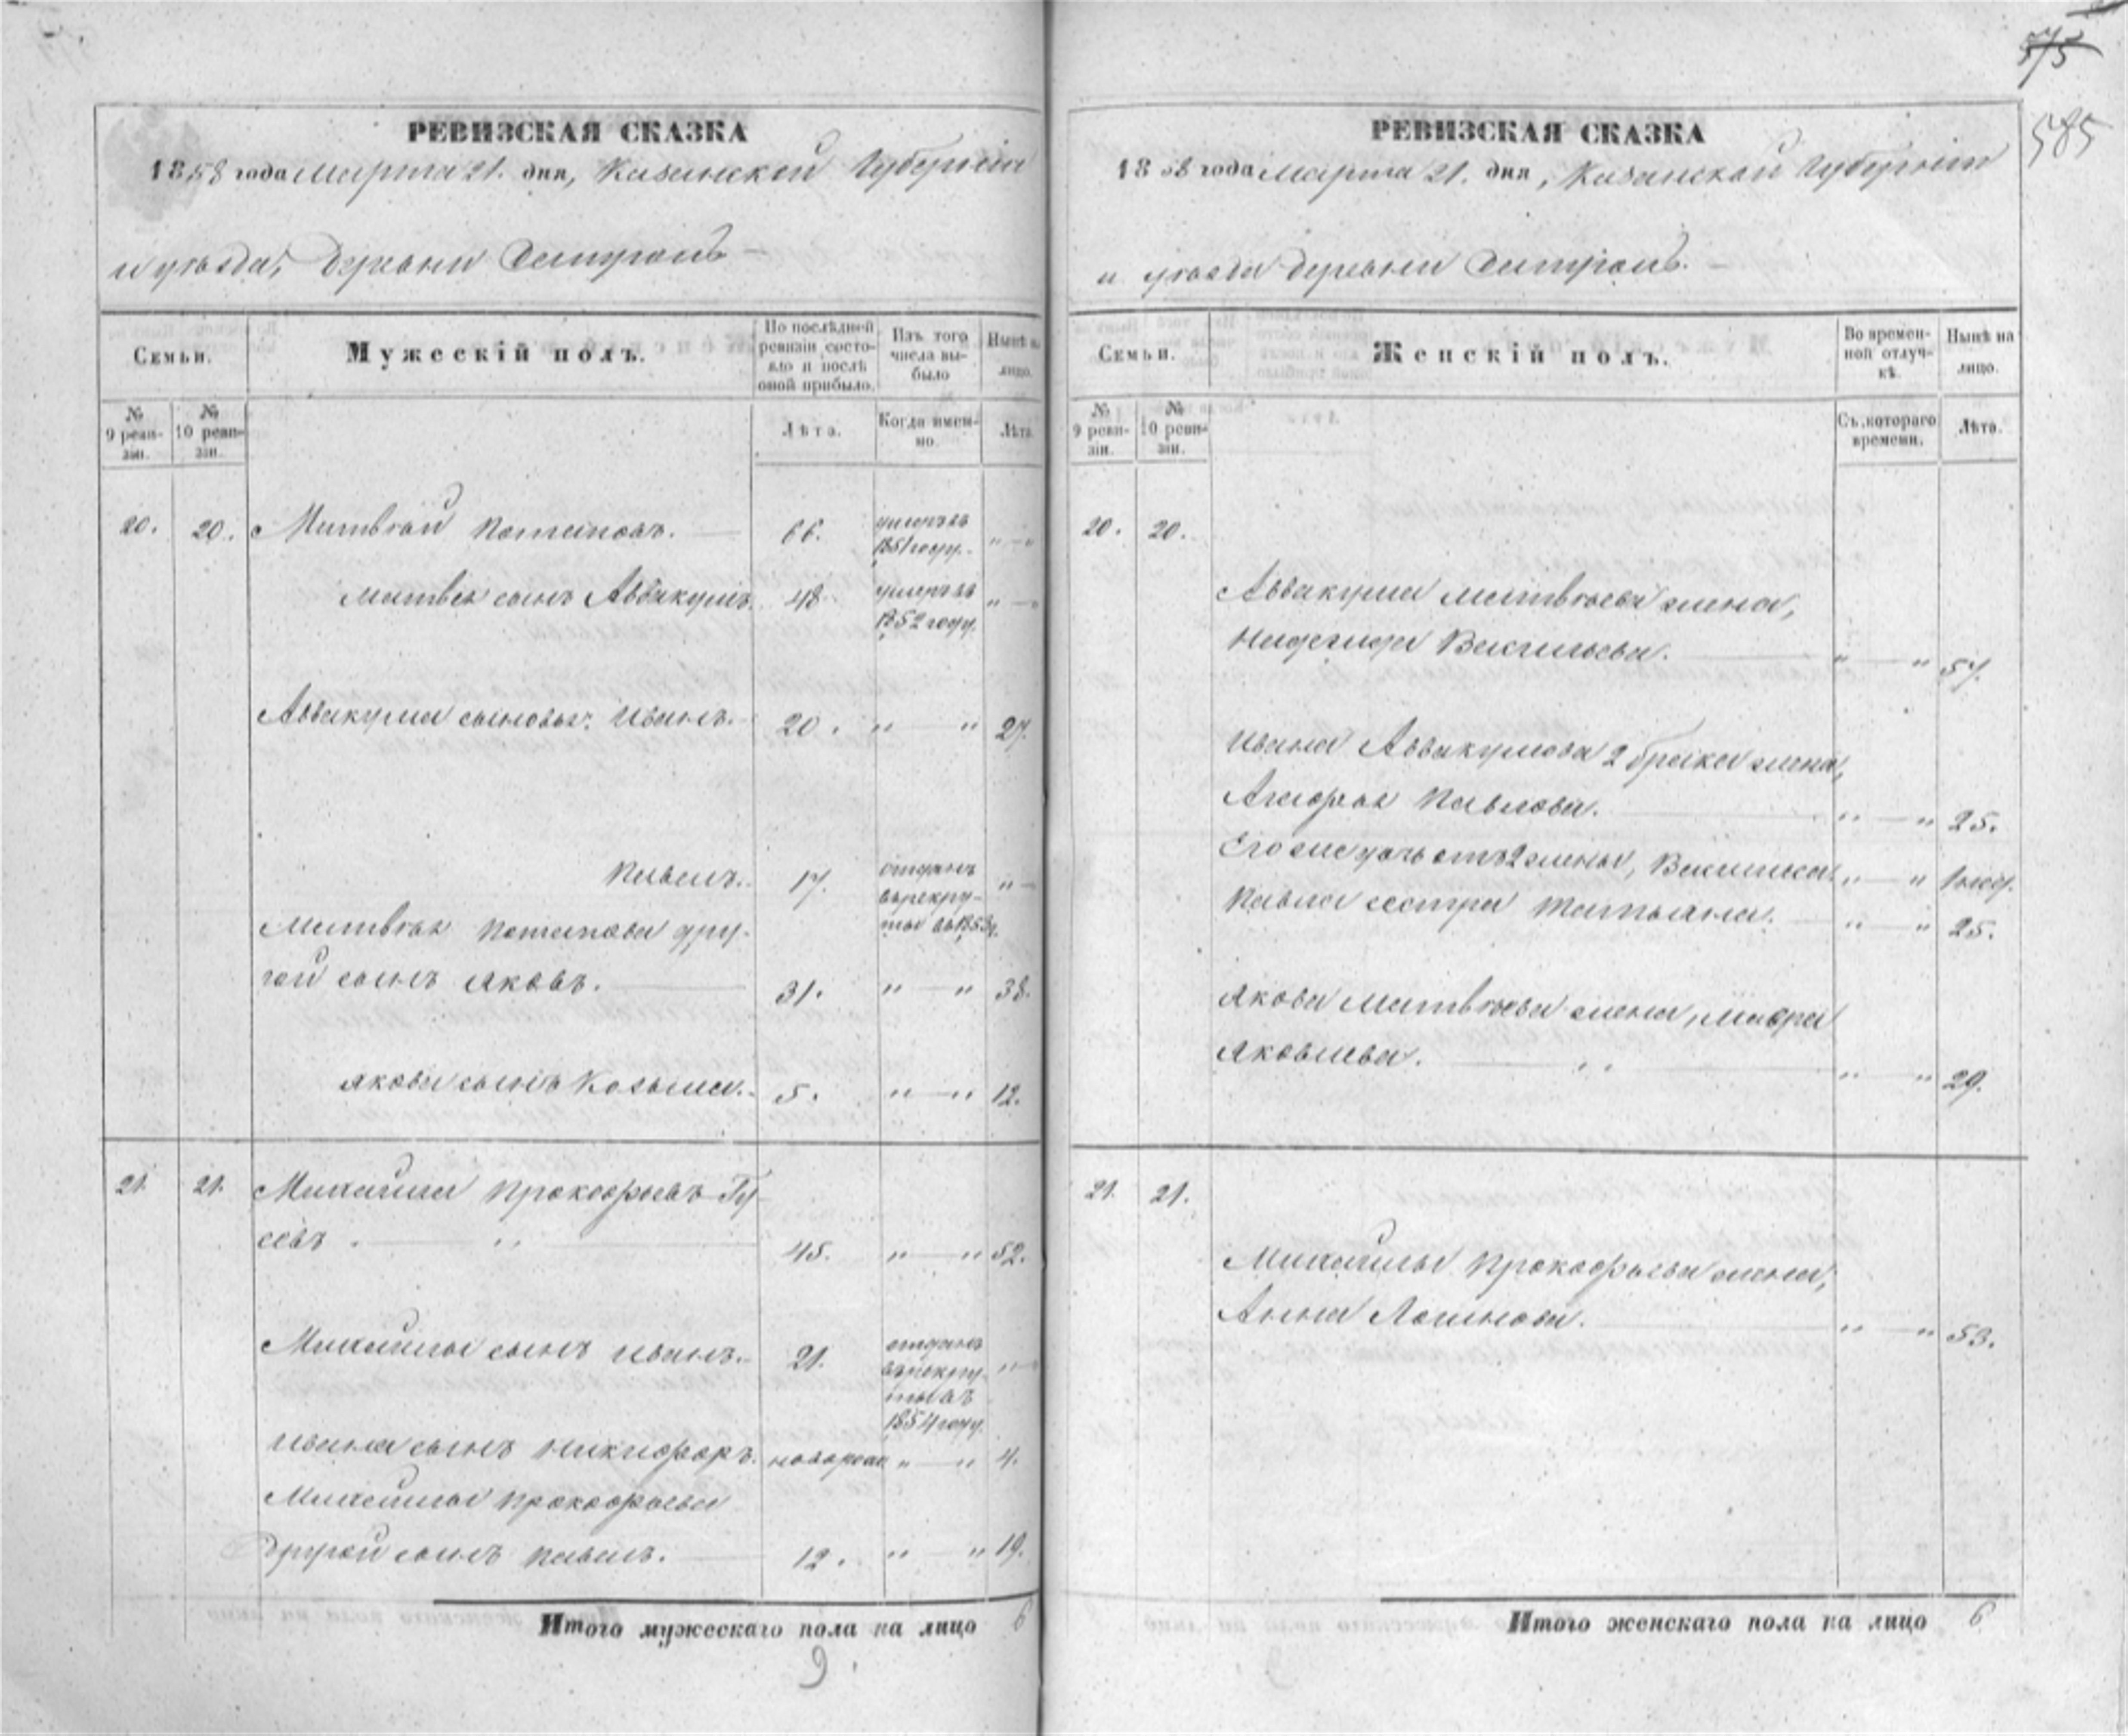 575
585
РЕВИЗСКАЯ СКАЗКА
1858 года Марта 21. дня, Казанской Губерніи
и уѣзда, деревни
Семьи.
Мужескій полъ.
По послѣдней ревизіи состояло и послѣ оной прибыло.
Изъ того числа выбыло
Нынѣ на лицо.
№ 9 ревизіи.
№ 10 ревизіи.
Лѣта.
Когда именно.
Лѣта.
20. 20. Матвѣй Потаповъ. 66. умеръ въ 1851 году. " — "
Матвѣя сынъ Аввакумъ. 48 умеръ въ 1852 году. " — "
Аввакума сыновья: Иванъ. 20. " " 27.
Павелъ. 17. отданъ въ рекруты въ 1853 г. " —
Матвѣя Потапова дру-
гой сынъ Яковъ. 31. " — " 38.
Якова сынъ Козьма. 5. " — " 12.
21. 21. Михайла Прокофьевъ Гу-
севъ. 45. " — " 52.
Михайлы сынъ Иванъ. 21. отданъ въ рекруты въ 1854 году. " —
Ивана сынъ Никифоръ. новорож " — " 4.
Михайлы Прокофьева
другой сынъ Павелъ. 12. " — " 19.
Итого мужескаго пола на лицо 6
9
РЕВИЗСКАЯ СКАЗКА
1858 года Марта 21. дня, Казанской Губерніи
и уѣзда деревни
Семьи.
Женскій полъ.
Во временной отлучкѣ.
Нынѣ на лицо.
№ 9 ревизіи.
№ 10 ревизіи.
Съ котораго времени.
Лѣта.
20. 20.
Аввакума Матвѣева жена,
Надежда Васильева. " — " 57.
Ивана Аввакумова 2 брака жена,
Павлова. " — " 25.
Его же дочь отъ 2 жены, " — " 1 нед.
Павла сестра Татьяна. " — " 25.
Якова Матвѣева жена, Мавра
Яковлева. " " 29.
21. 21.
Михайлы Прокофьева жена,
Анна Логинова. " — " 53.
Итого женскаго пола на лицо 6